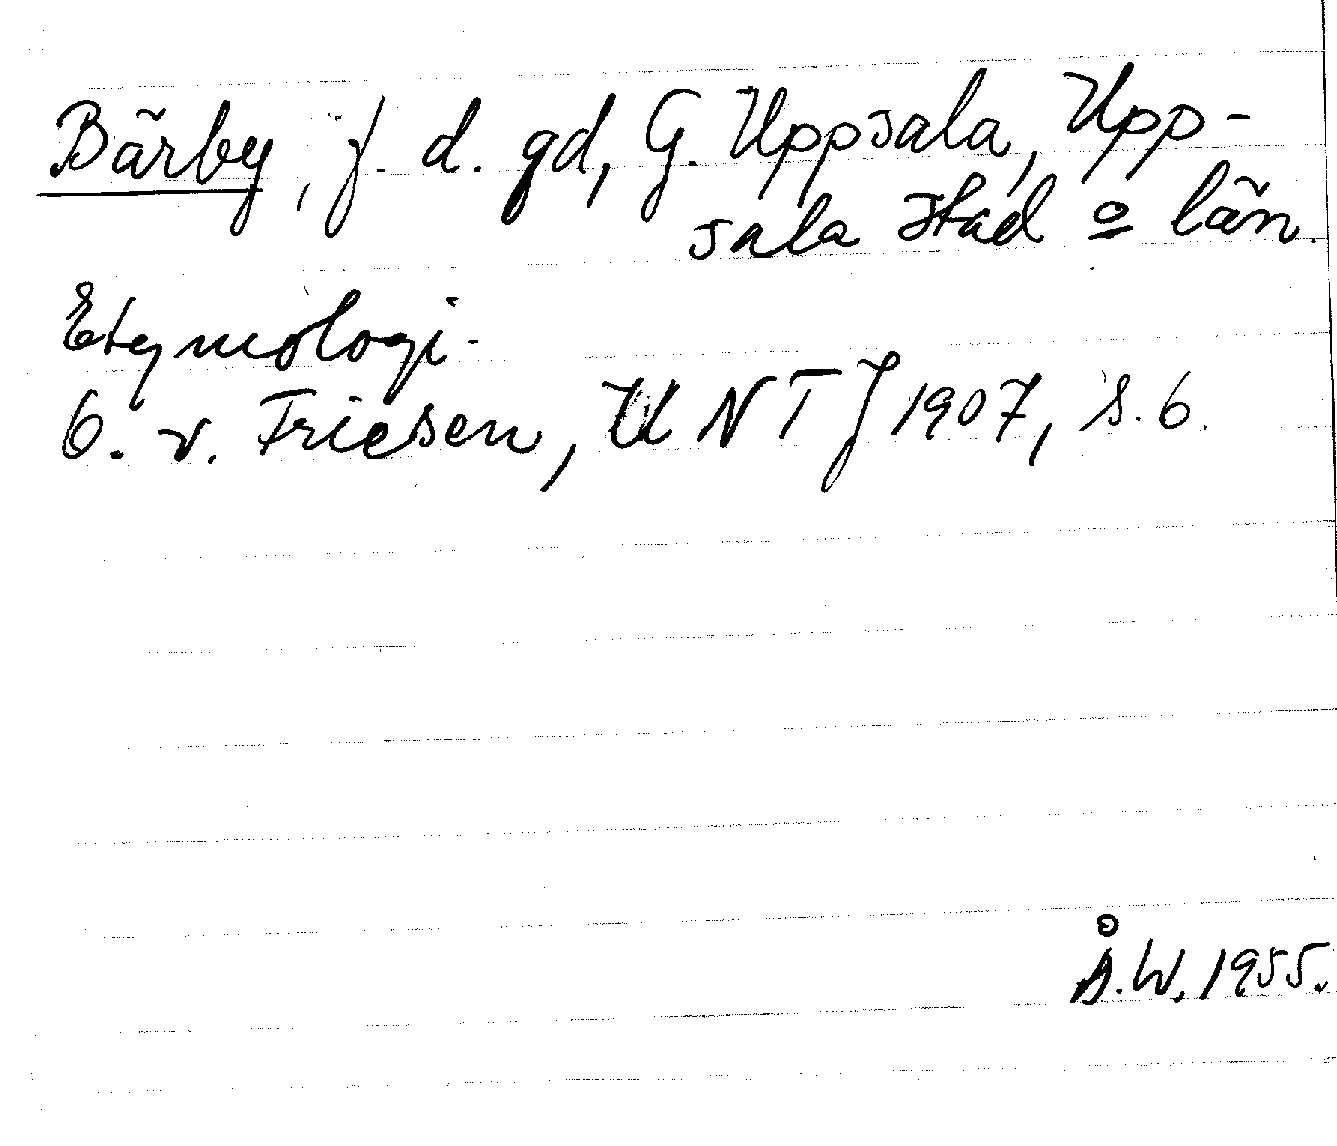 Bärby, f. d. gd, G. Uppsala, Upp-
sala stad o län.
Etymologi.
O. v. Friesen, UNTJ 1907, s. 6.
Å.W. 1955.